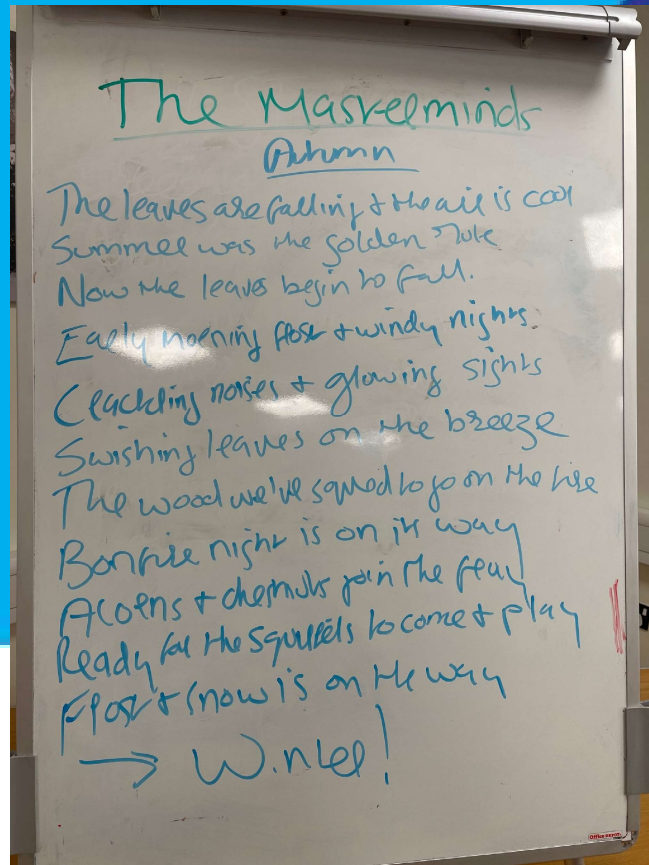 The Masterminds
Autumn
The leaves are falling & the air is cool
Summer was the golden rule
Now the leaves begin to fall.
Early morning frost & windy nights
Crackling noises & glowing sights
Swishing leaves on the breeze
The wood we've saved to go on the fire
Bonfire night is on its way
Acorns & chestnuts join the fray
Ready for the squirrels to come & play
Frost & snow is on the way
→ Winter!
Office DEPOT